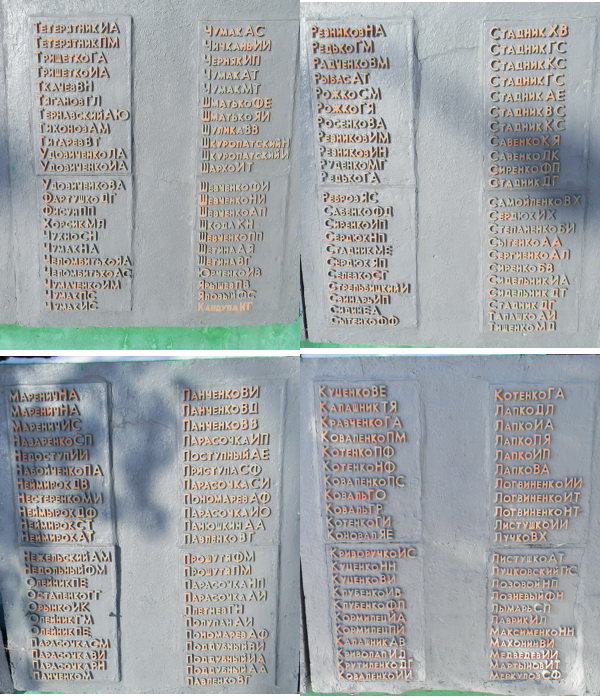 ТЕТЕРЯТНИК И А
ТЕТЕРЯТНИК П М
ТРИШЕТКО Г А
ТРИШЕТКО И А
ТКАЧЕВ В Н
ТАГАНОВ Г Л
ТЕРНАВСКИЙ А Ю
ТИХОНОВ А М
ТИТАРЕВ В Т
УДОВИЧЕНКО Л А
УДОВИЧЕНКО И А
УДОВИЧЕНКО В А
ФАРТУШКО Д Г
ФИСУН П П
ХОРСИК М Я
ЧУХНО С Н
ЧУМАК Н А
ЧЕПОМБИТЬКО Я А
ЧЕПОМБИТЬКО А С
ЧУМАЧЕНКО И М
ЧУМАК П С
ЧУМАК И С
ЧУМАК А С
ЧИЧКАНЬ И И
ЧЕРНЯК И П
ЧУМАК А Т
ЧУМАК М Т
ШМАТЬКО Ф Е
ШМАТЬКО Я И
ШУЛИКА В В
ШКУРОПАТСКИЙ Н
ШКУРОПАТСКИЙ И
ШАРКО И Т
ШЕВЧЕНКО Ф И
ШЕВЧЕНКО Н И
ШЕВЧЕНКО А П
ШКОДА К Н
ШЕВЧЕНКО П П
ШЕТИНА А Я
ШЕТИНА В Т
ЮРЧЕНКО И В
ЯРЫШЕВ П В
ЯЛОВЫЙ Ф С
КАНДУЛА Н Г
РЕЗНИКОВ Н А
РЕДЬКО Г М
РАДЧЕНКО В М
РЫБАС А Т
РОЖКО С М
РОЖКО Г Я
РОСЕНКО В А
РЕЗНИКОВ И М
РЕЗНИКОВ И Н
РУДЕНКО М Г
РЕДЬКА Г А
РЕБРОВ И С
САБЕНКО Ф Д
СИРЕНКО И П
СЕРДЮК Н П
СТАДНИК М Е
СЕРДЮК Я П
СЕЛЕВКО С Т
СТРЕЛЬБИЦКИЙ И И
СВИНАРЬ И П
СИДИН Е А
СЫТЕНКО Ф Ф
СТАДНИК Х В
СТАДНИК Г С
СТАДНИК К С
СТАДНИК Г С
СТАДНИК А Е
СТАДНИК В С
СТАДНИК К С
САВЕНКО К Я
САВЕНКО Л К
СИРЕНКО Ф П
СТАДНИК Д Г
САМОЙЛЕНКО В Х
СЕРДЮК И Х
СТЕПАНЕНКО Б И
СЫТЕНКО А А
СЕРГИЕНКО А Л
СИРЕНКО Б В
СИДЕЛЬНИК И А
СИДЕЛЬНИК Д Т
СТАДНИК Д Г
ТАЛАШКО А И
ТИЩЕНКО М Д
МАРЕНИЧ Н А
МАРЕНИЧ Н А
МАРЕНИЧ И С
НАЗАРЕНКО С П
НЕДОСТУП И И
НАБОЙЧЕНКО П А
НЕЙМИРОК Д В
НЕСТЕРЕНКО М И
НЕЙМЫРОК Д Ф
НЕЙМИРОК С Т
НЕЙМИРОК А Т
НЕЖЕЛЬСКИЙ А М
НЕДОЛЬНЫЙ Ф М
ОЛЕЙНИК П Е
ОСТАПЕНКО Г Г
ОРЫНКО И К
ОЛЕЙНИК Г М
ОЛЕЙНИК П Е
ПАРАСОЧКА С М
ПАРАСОЧКА В И
ПАРАСОЧКА В И
ПАНЧЕНКО М
ПАНЧЕНКО В И
ПАНЧЕНКО В Д
ПАНЧЕНКО В В
ПАРАСОЧКА И П
ПОСТУПНЫЙ А Е
ПРИСТУПА С Ф
ПАРАСОЧКА С И
ПОНОМАРЕВ А Ф
ПАРАСОЧКА И О
ПАНЮШКИН А А
ПАВЛЕНКО В Г
ПРОШУТЯ Ф М
ПРОШУТЯ П М
ПАРАСОЧКА Н П
ПАРАСОЧКА А И
ПЛЕТНЕВ Г Н
ПОЛУПАН А И
ПОНОМАРЕВ А Ф
ПОДДУБНЫЙ В И
ПОДДУБНЫЙ И А
ПОДДУБНЫЙ А А
ПАВЛЕНКО В Г
КУЦЕНКО В Е
КАЛАШНИК Т Я
КРАВЧЕНКО Г А
КОВАЛЕНКО П М
КОТЕНКО П Ф
КОТЕНКО Н Ф
КОВАЛЕНКО П С
КОВАЛЬ Г О
КОВАЛЬ Г Р
КОТЕНКО Г И
КОНОВАЛ Я Е
КРИВОРУЧКО И С
КУЦЕНКО Н Н
КУЦЕНКО В И
КЛУБЕНКО И В
КЛУБЕНКО Ф Л
КОРМИЛЕЦ И А
КОРМИЛЕЦ П И
КАПЛАННИК А В
КРИВОЛАП И Д
КРУТИЛЕНКО Д Г
КОВАЛЕНКО И И
КОТЕНКО Г А
ЛАПКО Д Л
ЛАПКО И А
ЛАПКО Л Я
ЛАПКО И П
ЛАПКО В А
ЛОГВИНЕНКО И И
ЛОГВИНЕНКО И Т
ЛОГВИНЕНКО Н Т
ЛИСТУШКО И И
ЛУЧКО В Х
ЛИСТУШКО А Т
ЛУЦКОВСКИЙ П С
ЛОЗОВОЙ Н П
ЛОЗНЕВЫЙ Ф Н
ЛЫМАРЬ С П
ЛАВРИК И Л
МАКСИМЕНКО Н Н
МАХОНИН В И
МЕДВЕДЕВ И И
МАРТЫНОВ И Т
МЕРКУЛОВ С Ф